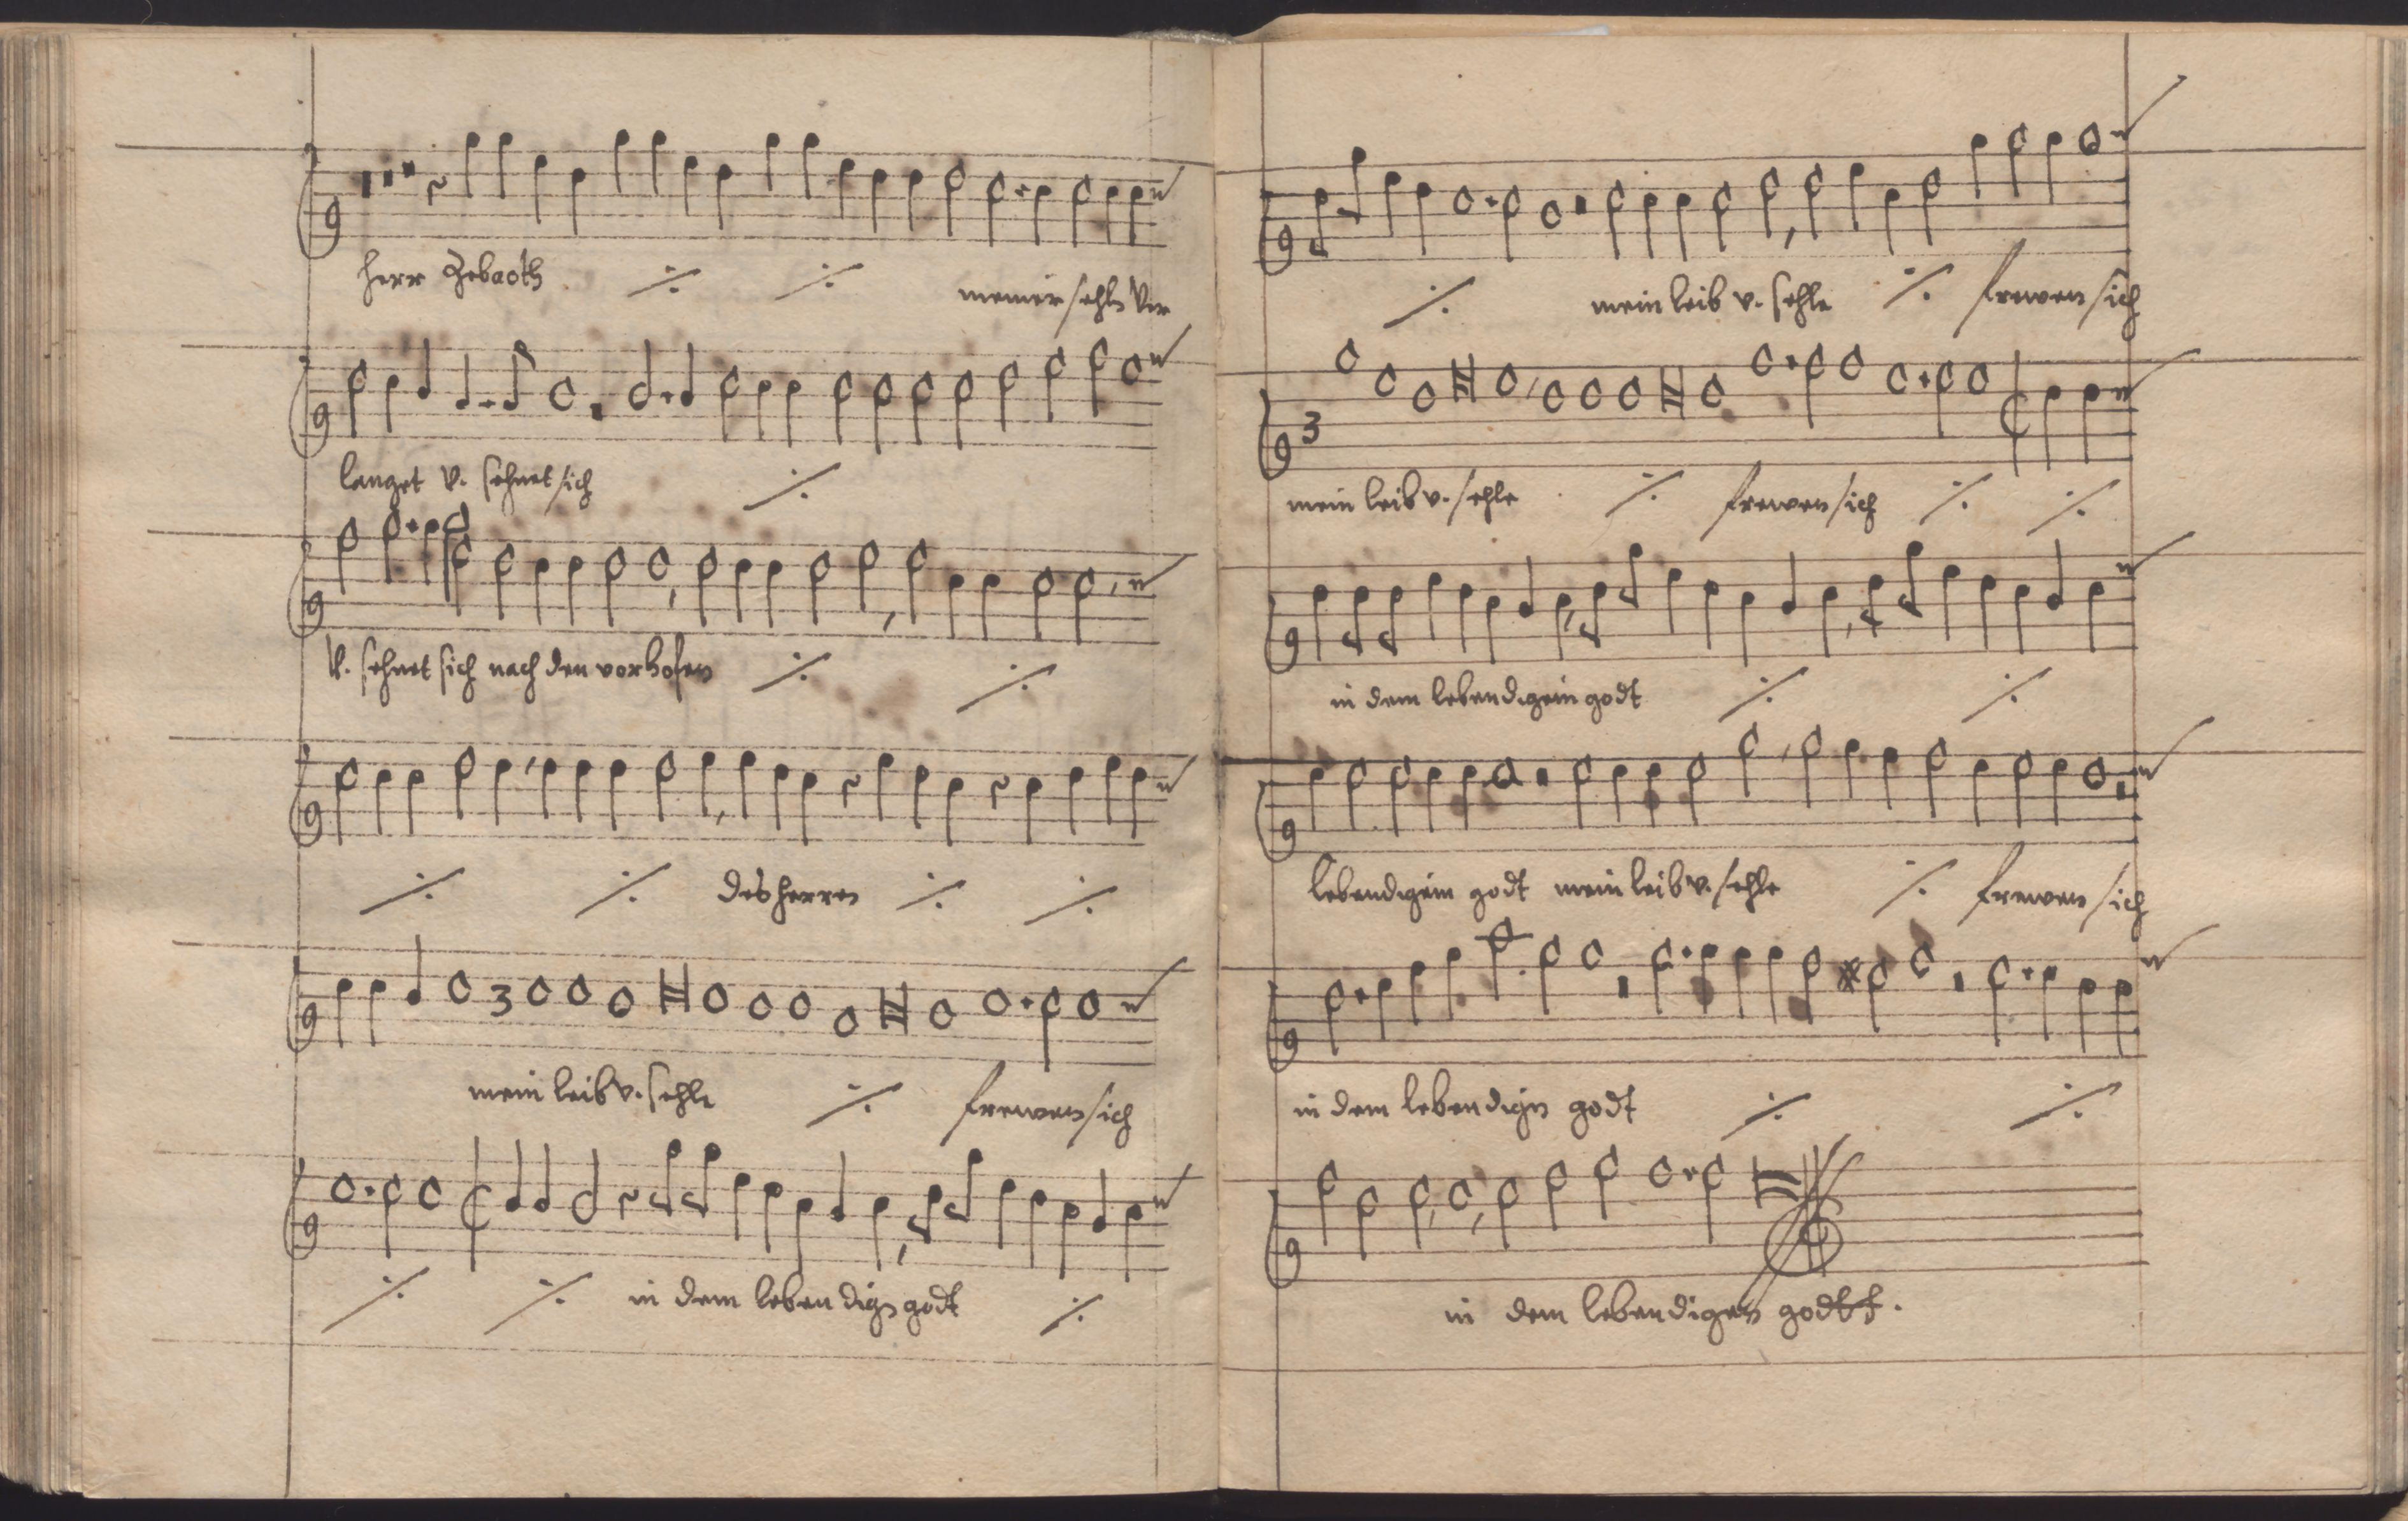 herr Zebaoth ⁒ ⁒ meiner sehls Ver
langet v. sehnet sich ⁒
v. sehnet sich nach den vorhofen ⁒ ⁒
⁒ ⁒ des herren ⁒ ⁒
3
mein leib v. sehle ⁒ frewen sich
⁒ ⁒ in dem lebendign godt ⁒
⁒ mein leib v. sehle ⁒ frewen sich
3
mein leib v. sehle ⁒ frewen sich ⁒ ⁒
in dem lebendigein godt ⁒ ⁒
lebendigein godt mein leib v. sehle ⁒ frewen sich
in dem lebendign godt ⁒ ⁒
in dem lebendigen godtt.